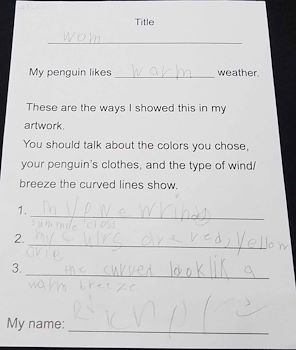 Title
wam
My penguin likes warm weather.
These are the ways I showed this in my
artwork.
You should talk about the colors you chose,
your penguin's clothes, and the type of wind/
breeze the curved lines show.
1. my
2. my are red, yellow
3. the curved look lik a
warm breeze
My name: